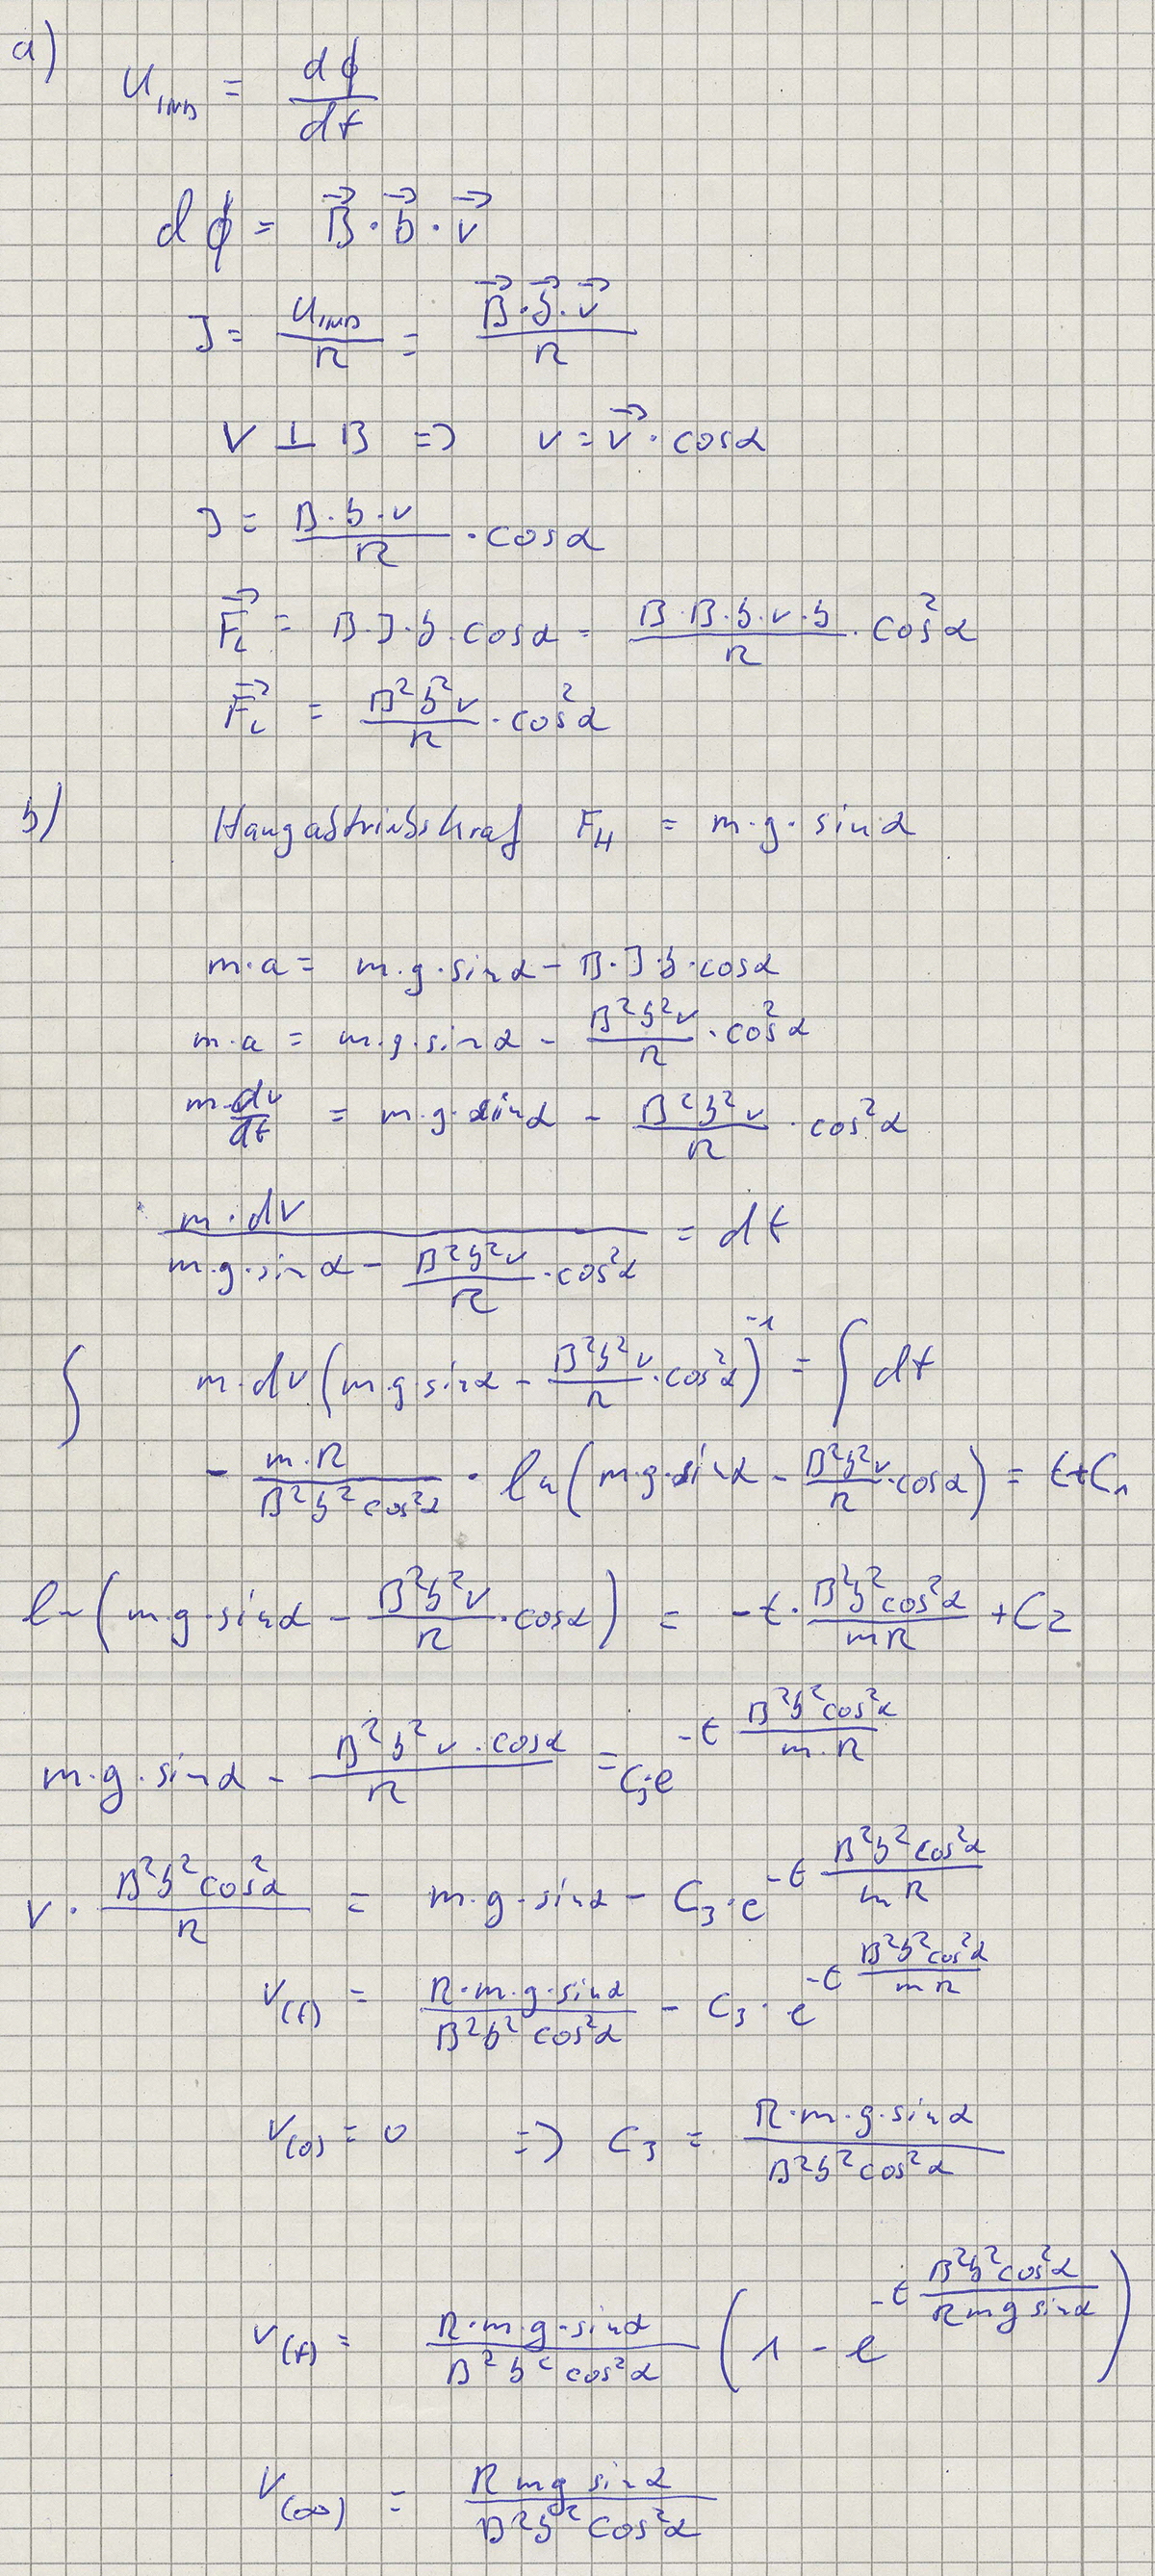 a)
U_IND = dϕ/dt
dϕ = B⃗ · b⃗ · v⃗
I = U_IND/R = (B⃗ · b⃗ · v⃗)/R
V ⊥ B => v = v⃗ · cosα
I = (B · b · v)/R · cosα
F⃗_L = B · I · b · cosα = (B · B · b · v · b)/R · cos²α
F⃗_L = (B² b² v)/R · cos²α
b) Hangabtriebskraf F_H = m · g · sinα
m · a = m · g · sinα − B · I · b · cosα
m · a = m · g · sinα − (B² b² v)/R · cos²α
m · dv/dt = m · g · sinα − (B² b² v)/R · cos²α
(m · dv)/(m · g · sinα − (B² b² v)/R · cos²α) = dt
∫ m · dv (m · g · sinα − (B² b² v)/R · cos²α)⁻¹ = ∫ dt
− (m · R)/(B² b² cos²α) · ln(m · g · sinα − (B² b² v)/R · cosα) = t + C₁
ln(m · g · sinα − (B² b² v)/R · cosα) = −t · (B² b² cos²α)/(mR) + C₂
m · g · sinα − (B² b² v · cosα)/R = C₃ · e^(−t (B² b² cos²α)/(m · R))
v · (B² b² cos²α)/R = m · g · sinα − C₃ · e^(−t (B² b² cos²α)/(mR))
v_(t) = (R · m · g · sinα)/(B² b² cos²α) − C₃ · e^(−t (B² b² cos²α)/(mR))
v_(0) = 0 => C₃ = (R · m · g · sinα)/(B² b² cos²α)
v_(t) = (R · m · g · sinα)/(B² b² cos²α) (1 − e^(−t (B² b² cos²α)/(R m g sinα)))
V_(∞) = (R m g sinα)/(B² b² cos²α)